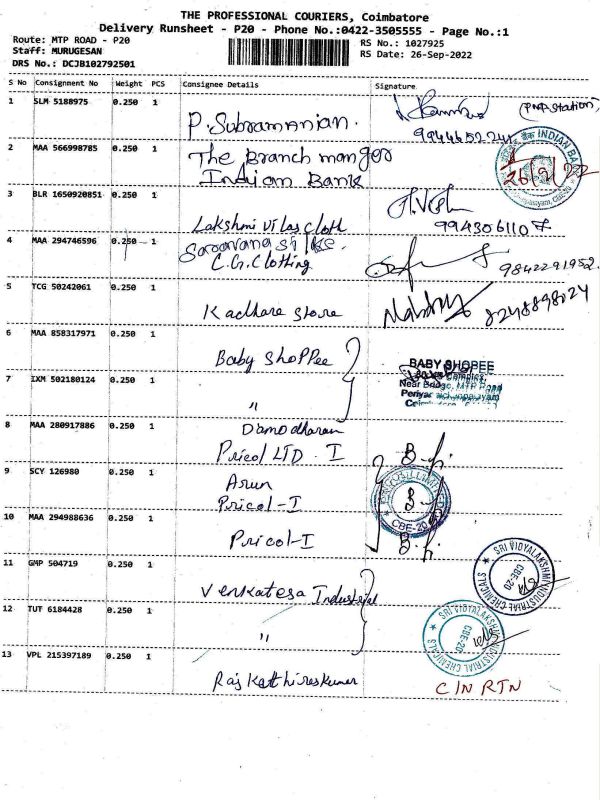 THE PROFESSIONAL COURIERS, Coimbatore
Delivery Runsheet - P20 - Phone No.:0422-3505555 - Page No.:1
Route: MTP ROAD - P20
Staff: MURUGESAN
DRS No.: DCJB102792501
RS No.: 1027925
RS Date: 26-Sep-2022
S No Consignment No Weight PCS Consignee Details Signature
1 SLM 5188975 0.250 1
P. Subramanian.
(PNP station)
2 MAA 566998785 0.250 1
The Branch manger
Indian Bank
INDIAN BA
26/9/22
3 BLR 1650920851 0.250 1
Lakshmi vilas cloth
9943061107
4 MAA 294746596 0.250 1
C.G. Clothing
9842291952.
5 TCG 50242061 0.250 1
Kadhare store
8248898024
6 MAA 858317971 0.250 1
Baby Shoppee
BABY SHOPEE
Near Bridge, MTP Road
7 IXM 502180124 0.250 1
"
8 MAA 280917886 0.250 1
Damodharan
Pricol LTD. I
9 SCY 126980 0.250 1
Arun
Pricol-I
CBE-20
10 MAA 294988636 0.250 1
Pricol-I
11 GMP 504719 0.250 1
Venkatesa Industrial
SRI VIDYALAKSHMI INDUSTRIAL CHEMICALS
CBE-20
12 TUT 6184428 0.250 1
"
SRI VIDYALAKSHMI INDUSTRIAL CHEMICALS
CBE-20
13 VPL 215397189 0.250 1
Raj Kathireskumar
C IN RTN